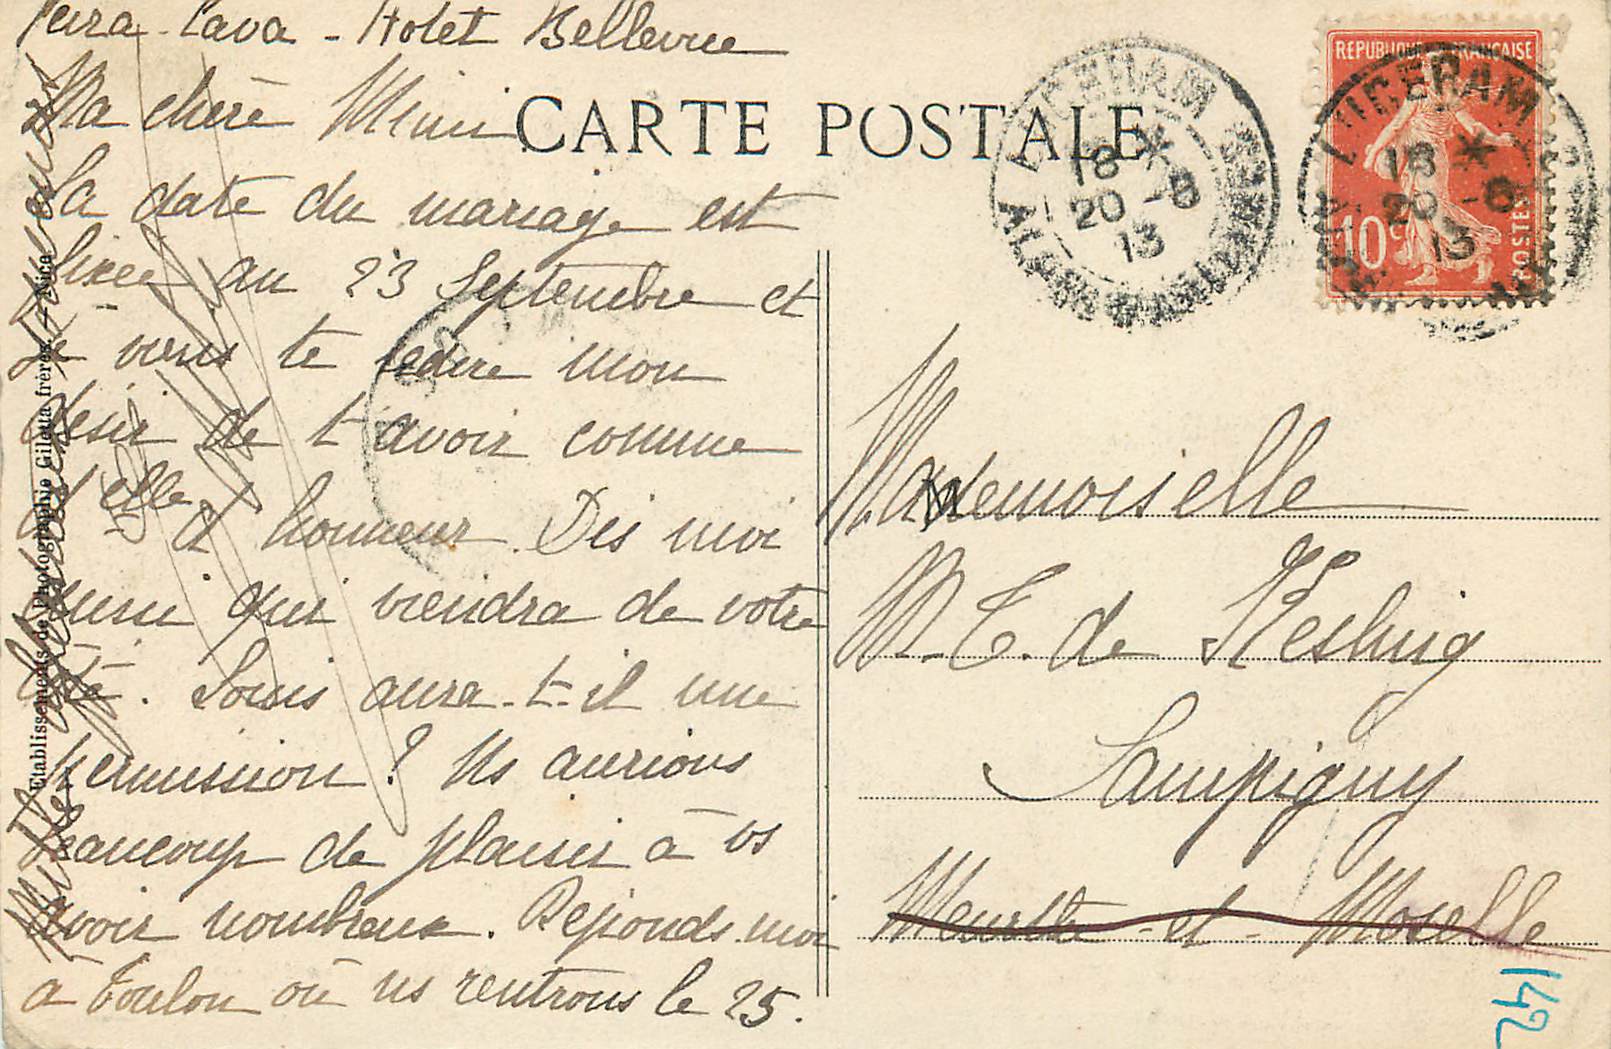 Peira-Cava - Hotel Bellevue
Ma chère Mimi
La date du mariage est
fixée au 23 Septembre et
je viens te redire mon
désir de t'avoir comme
d elle d'honneur. Dis moi
aussi qui viendra de votre
côté. Louis aura-t-il une
permission ? Ns aurions
beaucoup de plaisir à vs
avoir nombreux. Réponds moi
à Toulon où ns rentrons le 25.
Etablissements de Photographie Giletta frères. - Nice
CARTE POSTALE
LUCERAM
18 *
20 -8
13
ALPES MARITIMES
REPUBLIQUE FRANÇAISE
10c
POSTES
LUCERAM
18 *
20 -8
13
Mademoiselle
M. T. de
Sampigny
Meurthe-et-Moselle
142